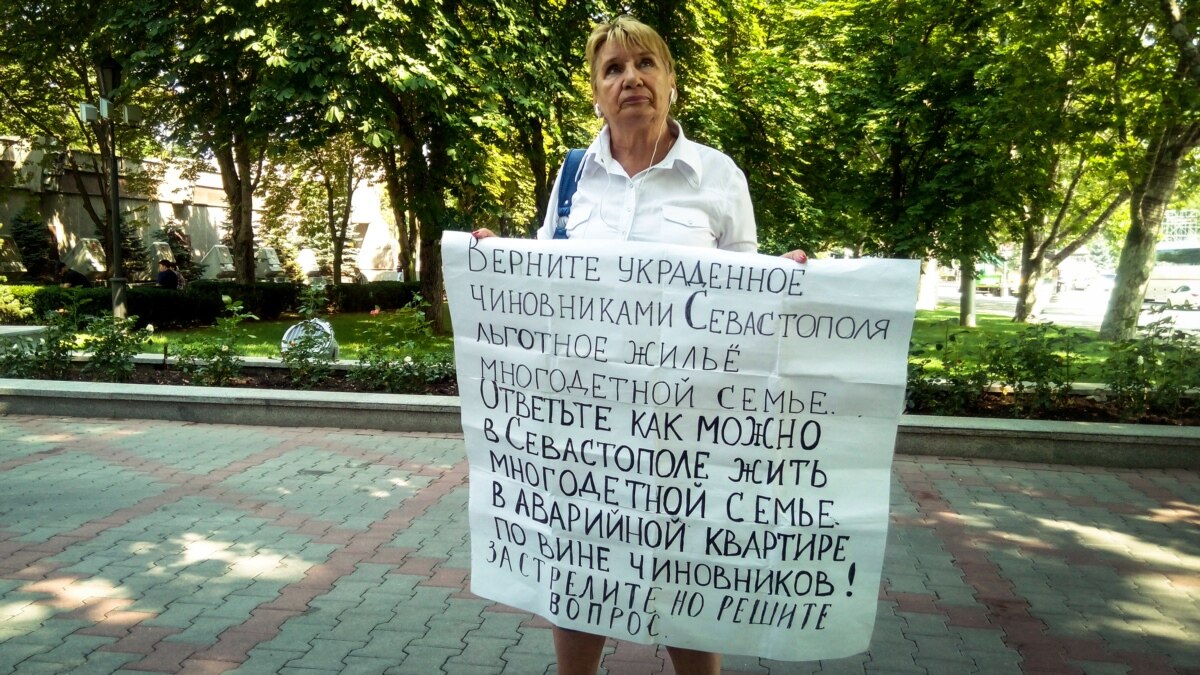 Верните украденное
чиновниками Севастополя
льготное жильё
многодетной семье.
Ответьте как можно
в Севастополе жить
многодетной семье.
в аварийной квартире
по вине чиновников!
Застрелите но решите
вопрос.